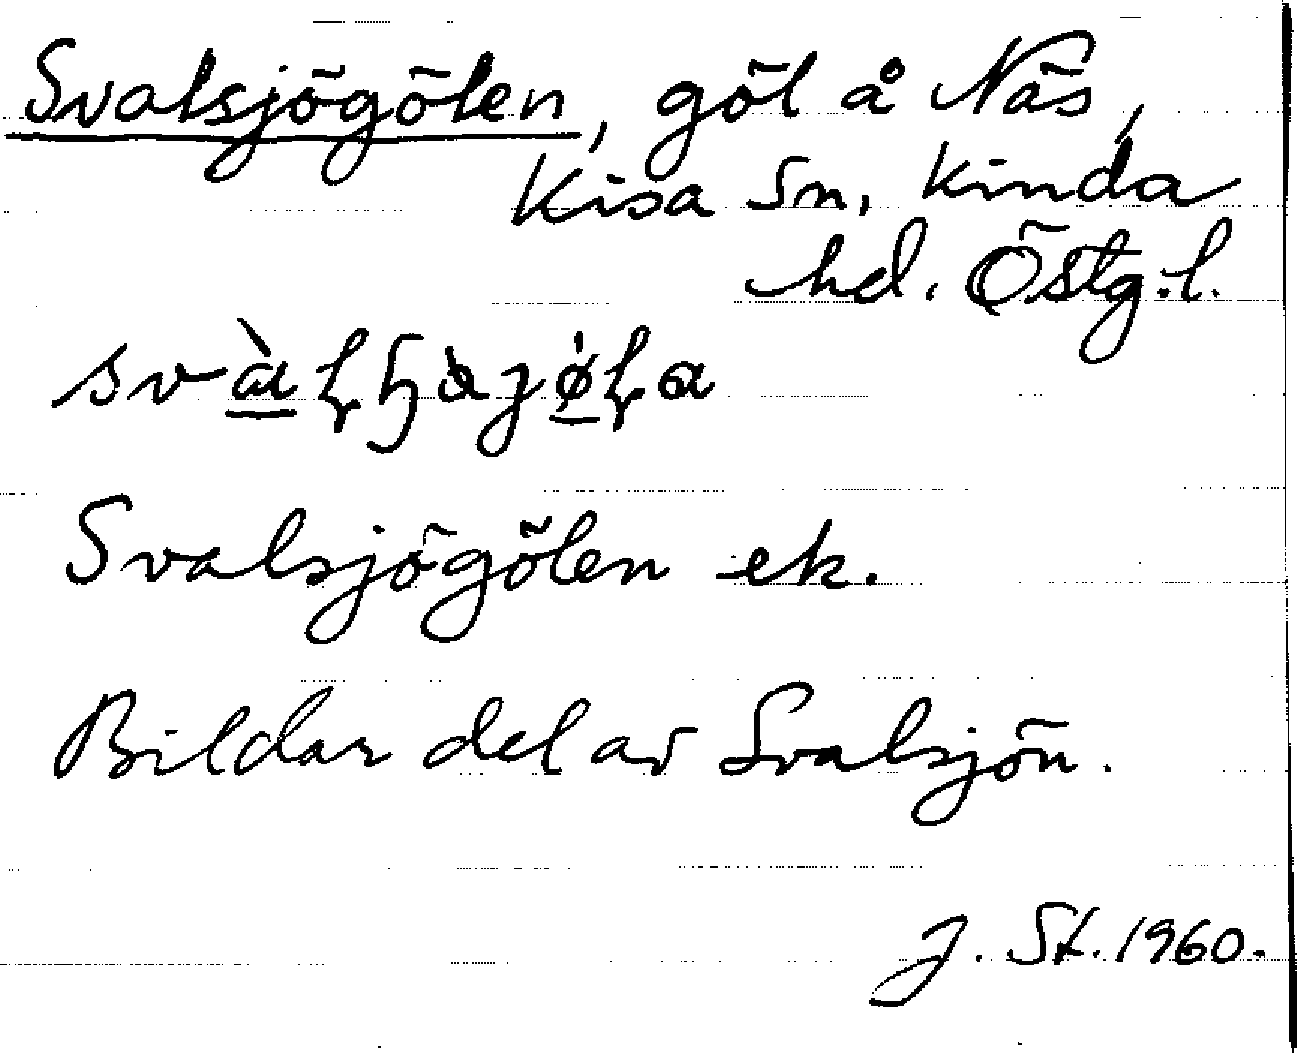 Svalsjögölen, göl å Näs,
Kisa sn, Kinda
hd. Östg.l.
Svalsjögölen ek.
Bildar del av Svalsjön.
J. St. 1960.